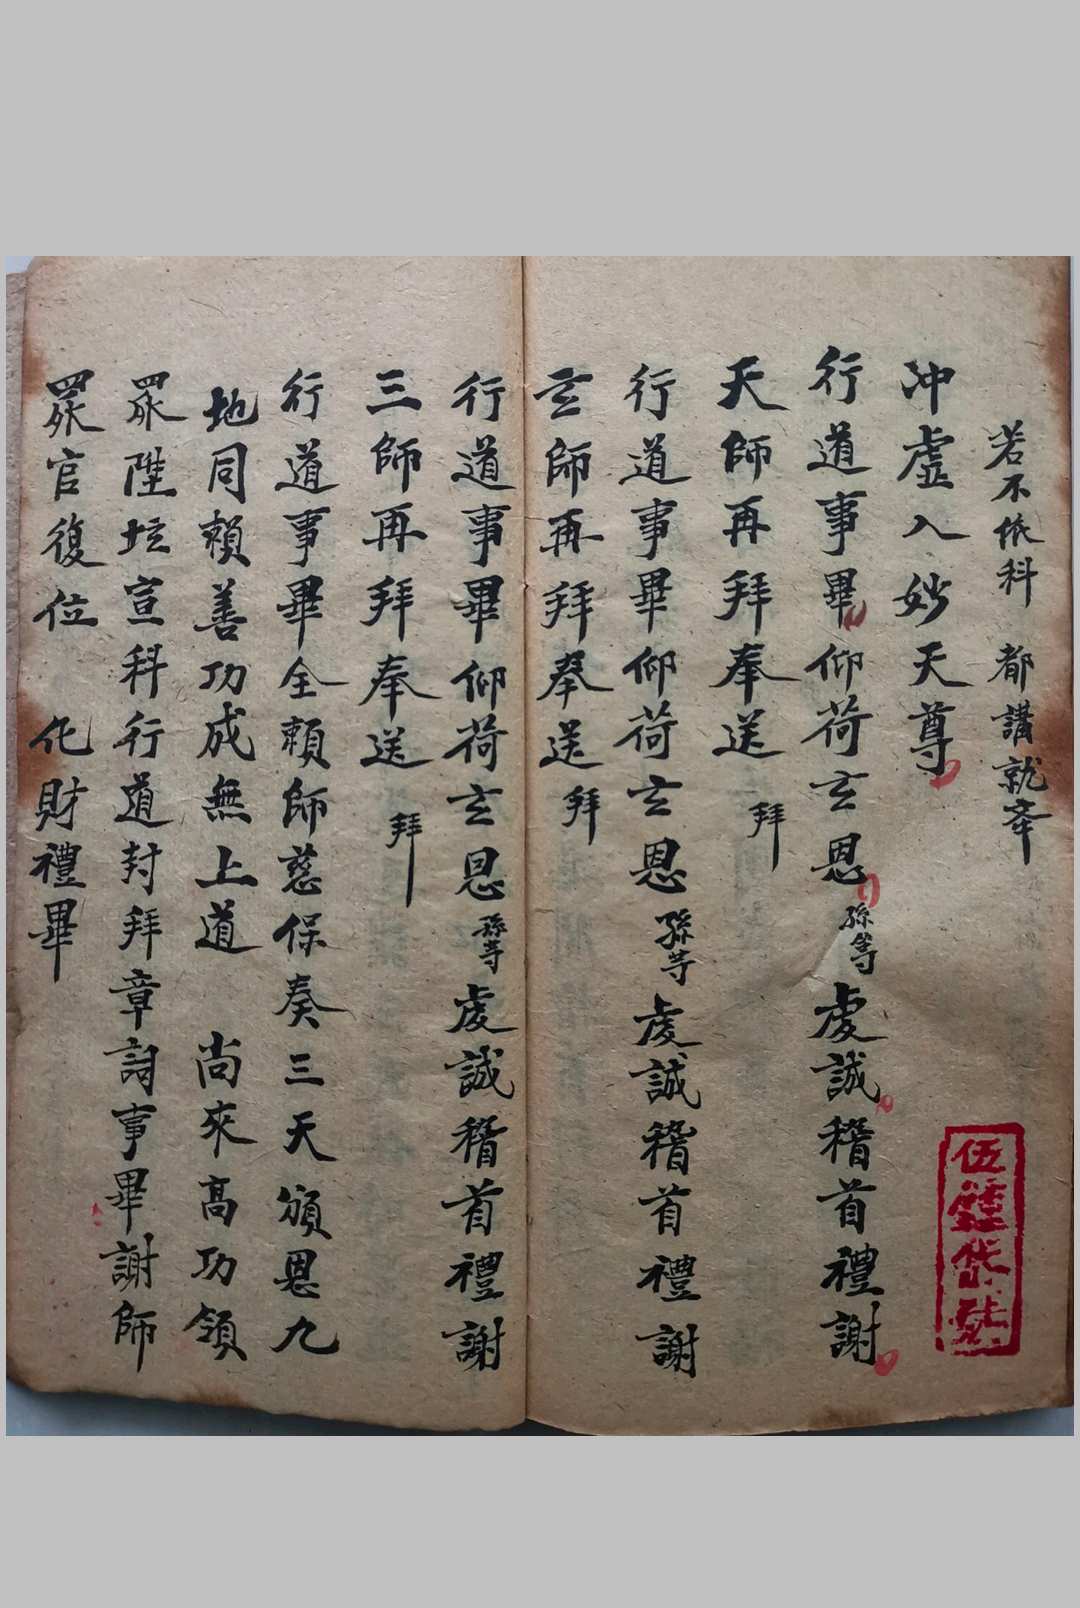 若不依科　都講就牽
冲虛入妙天尊
行道事畢仰荷玄恩孫等虔誠稽首禮謝
天師再拜奉送　拜
行道事畢仰荷玄恩孫等虔誠稽首禮謝
玄師再拜奉送　拜
行道事畢仰荷玄恩孫等虔誠稽首禮謝
三師再拜奉送　拜
行道事畢全賴師慈保奏三天頒恩九
地同賴善功成無上道　尚來高功領
眾陞坛宣科行道封拜章詞事畢謝師
眾官復位　化財禮畢
伍